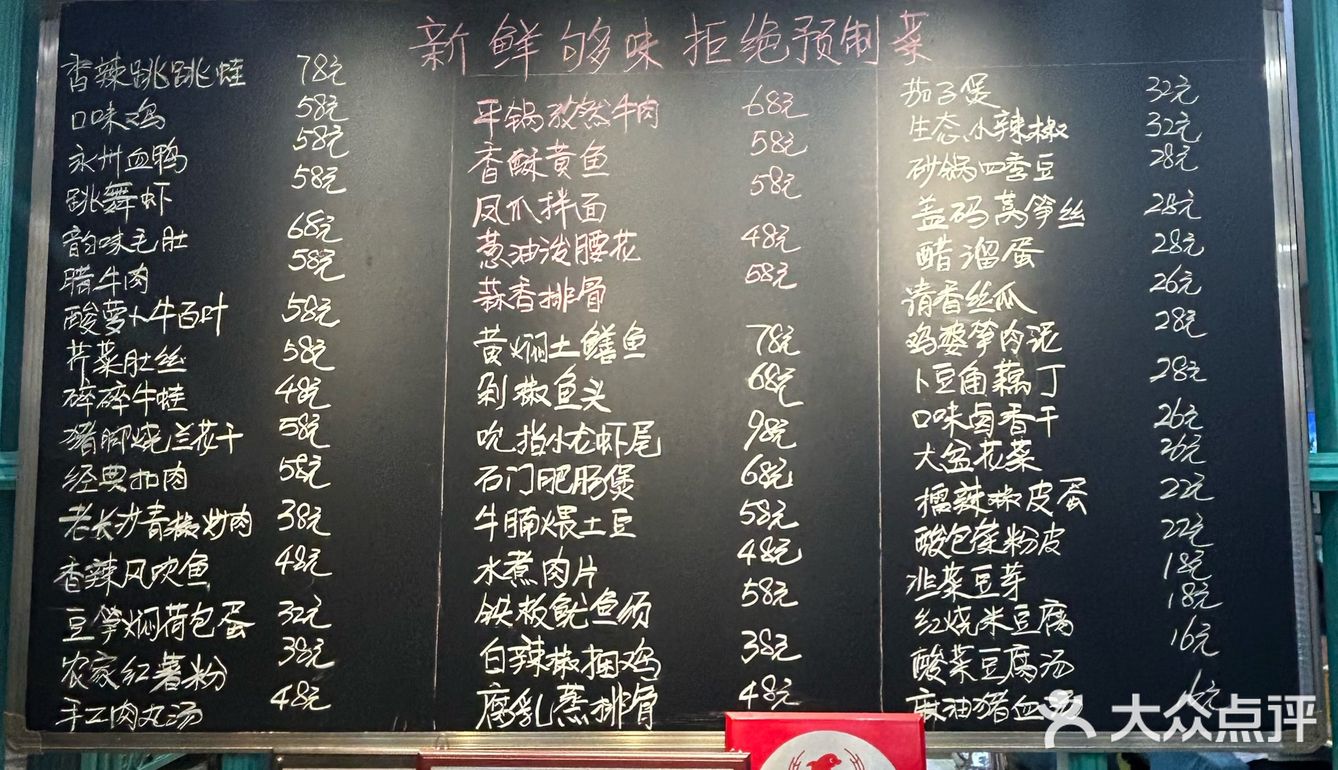 新鲜够味 拒绝预制菜
香辣跳跳蛙 78元
口味鸡 58元
永州血鸭 58元
跳舞虾 58元
韵味毛肚 68元
腊牛肉 58元
酸萝卜牛百叶 58元
芹菜肚丝 58元
碎碎牛蛙 48元
猪脚烧兰花干 58元
经典扣肉 58元
老长沙青椒炒肉 38元
香辣风吹鱼 48元
豆笋焖荷包蛋 32元
农家红薯粉 38元
手工肉丸汤 48元
平锅孜然牛肉 68元
香酥黄鱼 58元
凤爪拌面 58元
葱油泼腰花 48元
蒜香排骨 58元
黄焖土鳝鱼 78元
剁椒鱼头 68元
吮指小龙虾尾 98元
石门肥肠煲 68元
牛腩煨土豆 58元
水煮肉片 48元
铁板鱿鱼须 58元
白辣椒捆鸡 38元
腐乳蒸排骨 48元
茄子煲 32元
生态小辣椒 32元
砂锅四季豆 28元
盖码莴笋丝 28元
醋溜蛋 28元
清香丝瓜 26元
鸡婆笋肉泥 28元
卜豆角藕丁 28元
口味卤香干 26元
大盆花菜 26元
擂辣椒皮蛋 22元
酸包菜粉皮 22元
韭菜豆芽 18元
红烧米豆腐 18元
酸菜豆腐汤 16元
麻油猪血汤 元
大众点评